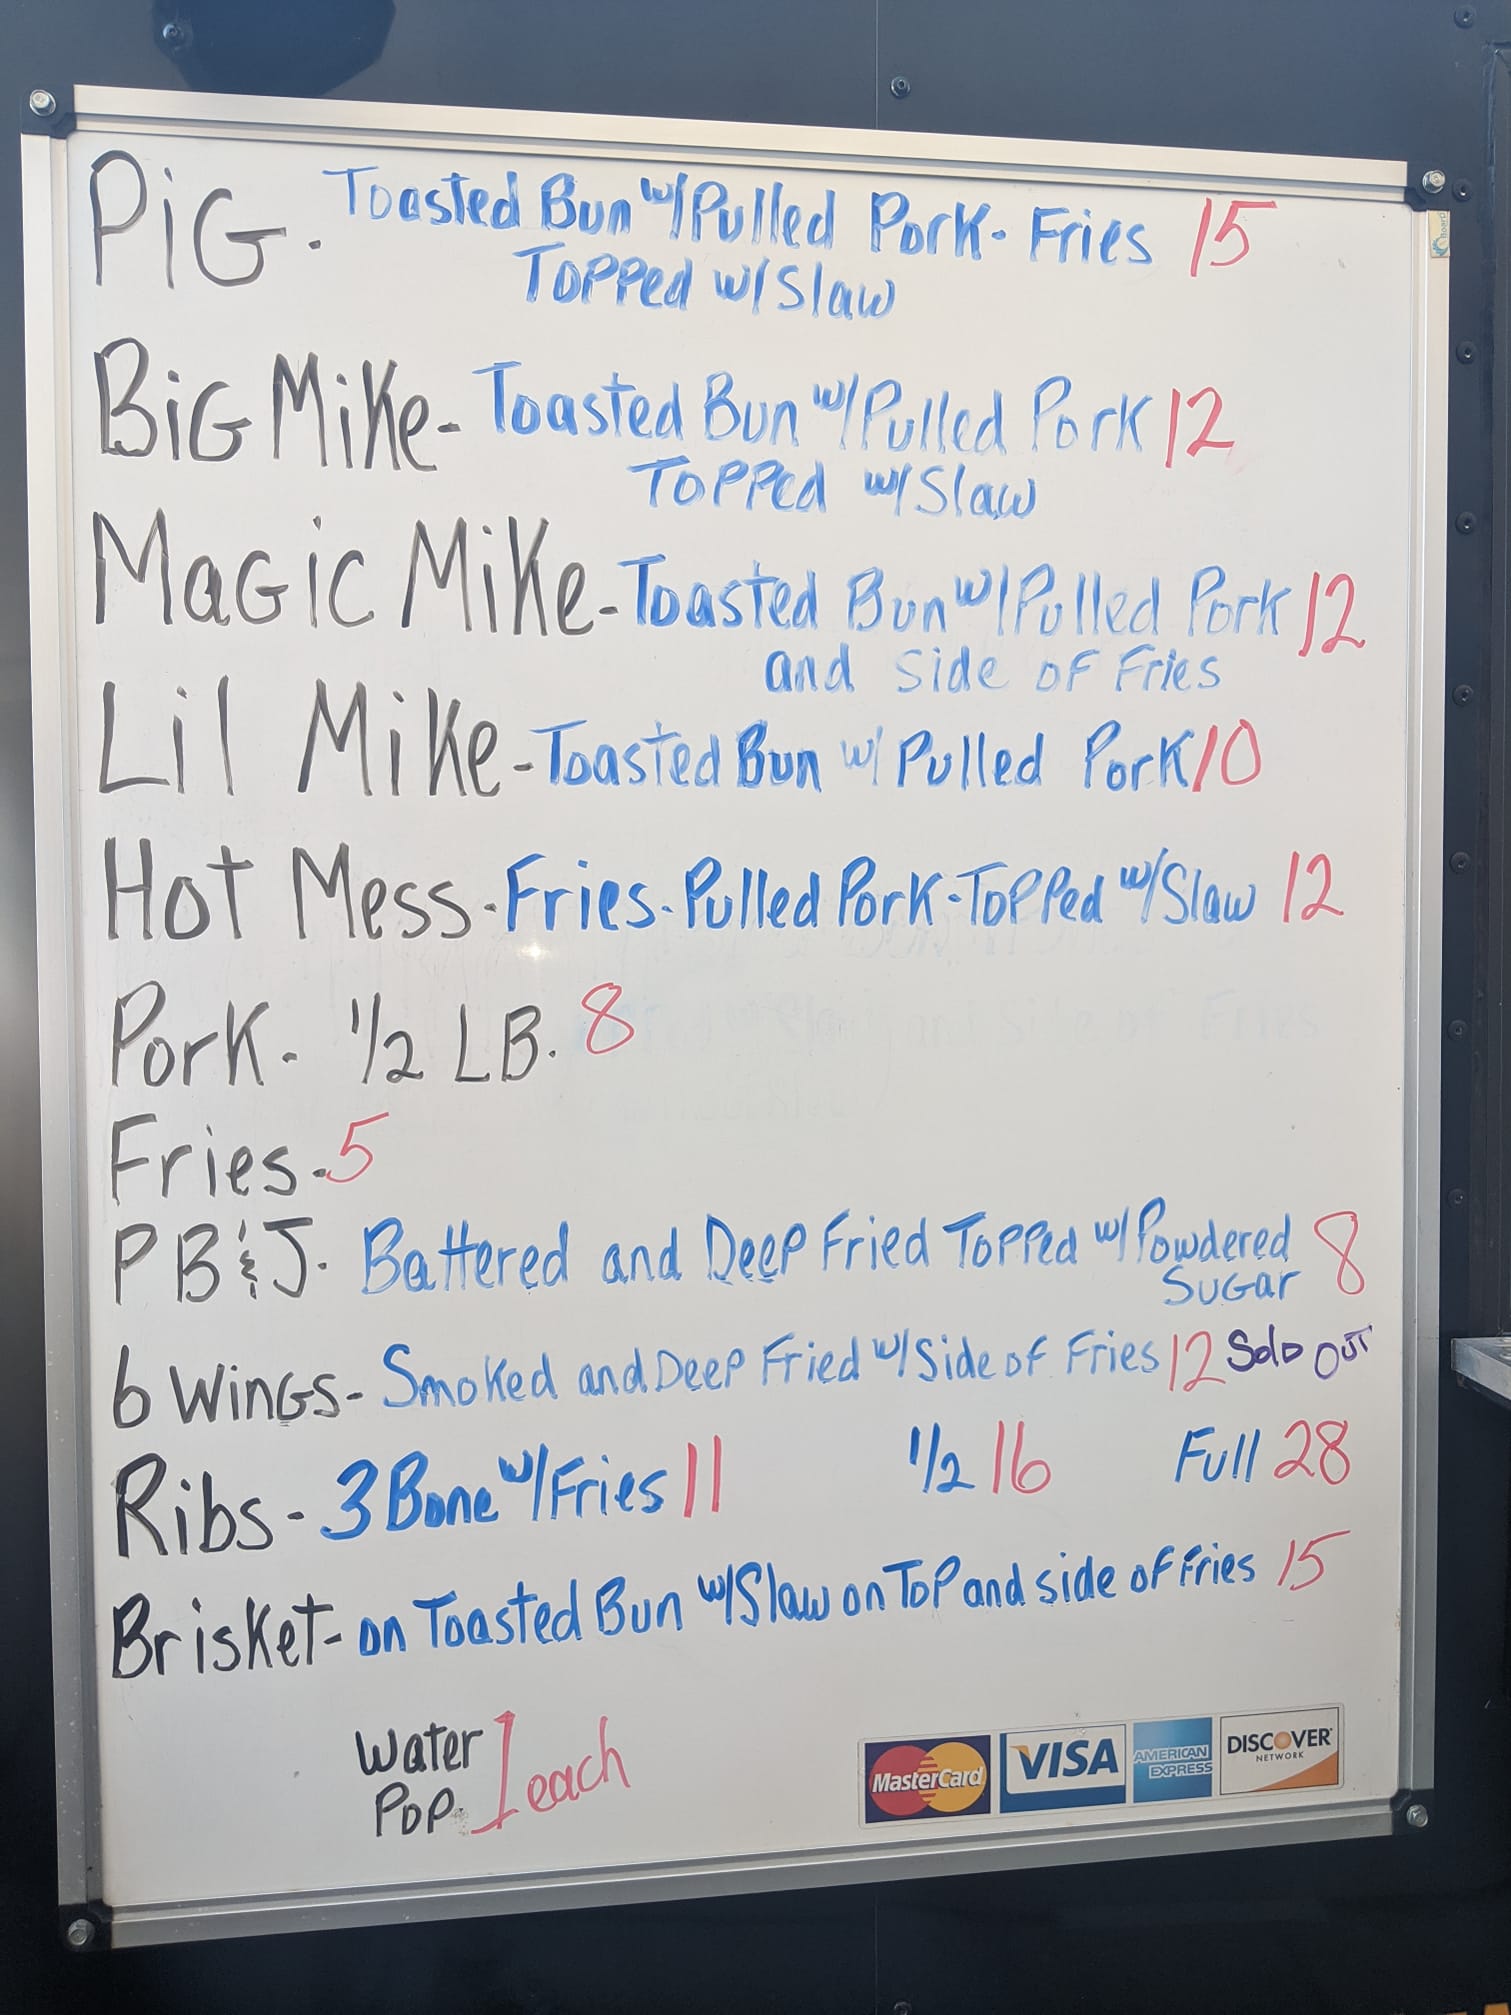 PiG. Toasted Bun w/Pulled Pork- Fries 15
Topped w/Slaw
BiG Mike- Toasted Bun w/Pulled Pork 12
Topped w/Slaw
MaGic Mike- Toasted Bun w/Pulled Pork 12
and side of Fries
Lil Mike- Toasted Bun w/ Pulled Pork 10
Hot Mess- Fries-Pulled Pork-Topped w/Slaw 12
Pork- 1/2 LB. 8
Fries-5
PB&J- Battered and Deep Fried Topped w/Powdered 8
Sugar
6 WinGs- Smoked and Deep Fried w/Side of Fries 12 Sold Out
Ribs- 3 Bone w/Fries 11 1/2 16 Full 28
Brisket- on Toasted Bun w/Slaw on Top and side of Fries 15
Water
Pop- 1 each
MasterCard VISA AMERICAN EXPRESS DISCOVER NETWORK